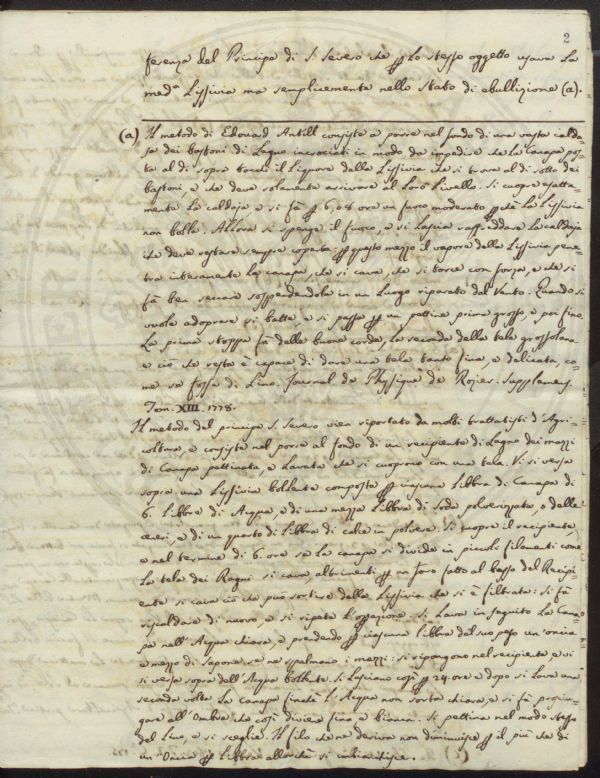 2
ferenza del Principe di S. Severo che p lo stesso oggetto usava la
med.ª Lissivia ma semplicemente nello stato di ebullizione (a).
(a) Il metodo di Edouard Antill consiste a porre nel fondo di una vasta calda
ja dei bastoni di Legno incrociati in modo da impedire che la Canapa pos
ta al di sopra tocchi il Liquore della Lissivia che si trova al di sotto dei
bastoni, e che deve solamente arrivare al loro livello. Si cuopre esatta-
mente la caldaja e si fà p 6, o 8 ore un fuoco moderato p che la Lissivia
non bolla. Allora si spenge il fuoco, e si lascia raffreddare la caldaja
che deve restare sempre coperta; p questo mezzo il vapore della Lissivia pene-
tra interamente la canapa, che si cava, che si torce con forza, e che si
fà ben seccare sospendendola in un luogo riparato dal Vento. Quando si
vuole adoprare si batte e si passa p un pettine prima grosso, e poi fino.
La prima stoppa fà delle buone corde, la seconda della tela grossolana
e ciò che resta è capace di dare una tela tanto fina, e delicata, co-
me se fosse di Lino. Journal de Physique de Rozier. Supplement.
Tom. XIII. 1778.
Il metodo del principe S. Severo vien riportato da molti trattatisti d'Agri-
coltura, e consiste nel porre al fondo di un recipiente di Legno dei mazzi
di Canapa pettinata, e Lavata che si cuoprono con una tela. Vi si versa
sopra una Lissivia bollente composta p ciascuna Libbra di Canapa di
6. Libbre di Acqua, e di una mezza Libbra di Soda polverizzata, o delle
ceneri, e di un quarto di Libbra di calce in polvere. Si cuopre il recipiente,
e nel termine di 6. ore se la canapa si divide in piccoli filamenti come
la tela dei Ragni si cava altrimenti p un foro fatto al basso del Recipi-
ente si cava ciò che può sortire della Lissivia che si è filtrata: si fà
riscaldare di nuovo, e si ripete l'operazione. Si Lava in seguito la Cana-
pa nell'Acqua chiara, e prendendo p ciascuna libbra del suo peso un'oncia
e mezzo di sapone se ne spalmano i mazzi: si ripongono nel recipiente e vi
si versa sopra dell'Acqua bollente. Si lasciano così p 24 ore e dopo si lava una
seconda volta la canapa finchè l'Acqua non sorta chiara, e si fà prosciu-
gare all'Ombra che così diviene fina e bianca. Si pettina nel modo stesso
del Lino, e si sceglie. Il filo che ne deriva non diminuisce p il più che di
un'Oncia p Libbra allorchè si imbianchisce.